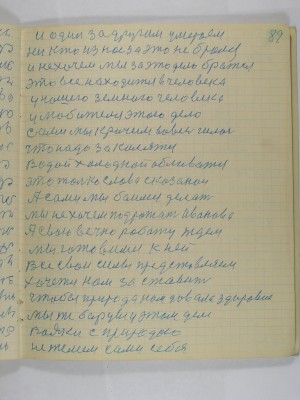 89
и один за другим умираем
ни кто из нас за это не брался
и не хочем мы за это дело браться
это все находится в человека
у нашего земного человека
и любители этого дело
сами мы кричем во все силы
что надо закаляти
водой холодной обливатся
это только слова сказаной
А сами мы боимся делат
мы не хочем подрожат Иванова
А свою вечно работу ждем
мы готовим к ней
Все свои силы представляем
Хочется нам заставит
чтобы природа нам довала здоровия
мы же в этом дел
с природою
не жалеем сами себя